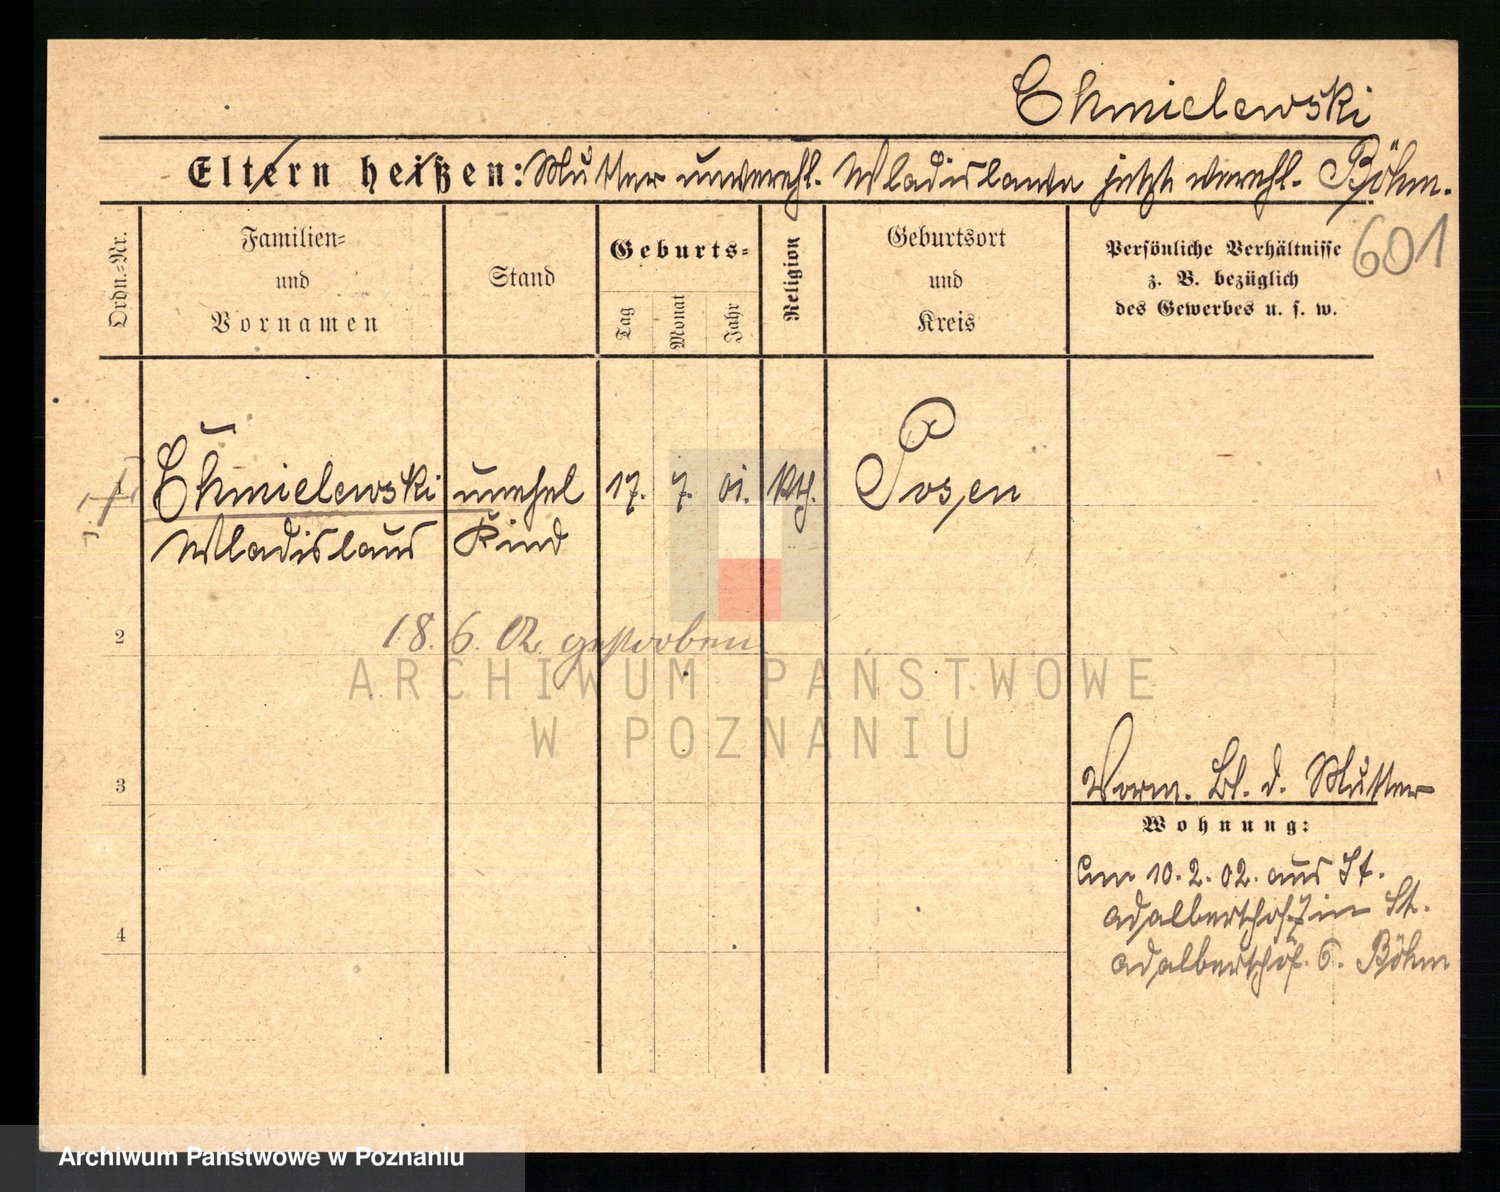 Chmielewski
Eltern heißen: Mutter unverehl. Wladislawa jetzt verehl. Böhm.
601
Ordn.-Nr.
Familien-
und
Vornamen
Stand
Geburts-
Tag
Monat
Jahr
Religion
Geburtsort
und
Kreis
Persönliche Verhältnisse
z. B. bezüglich
des Gewerbes u. s. w.
Chmielewski unehel 17. 7. 01. kth. Posen
Wladislaus Kind
2
18. 6. 02. gestorben
ARCHIWUM PAŃSTWOWE
W POZNANIU
3
Vorm. Bl. d. Mutter
Wohnung:
Am 10. 2. 02. aus St.
Adalberthof 7 in St.
4
Adalberthof. 6. Böhm
Archiwum Państwowe w Poznaniu